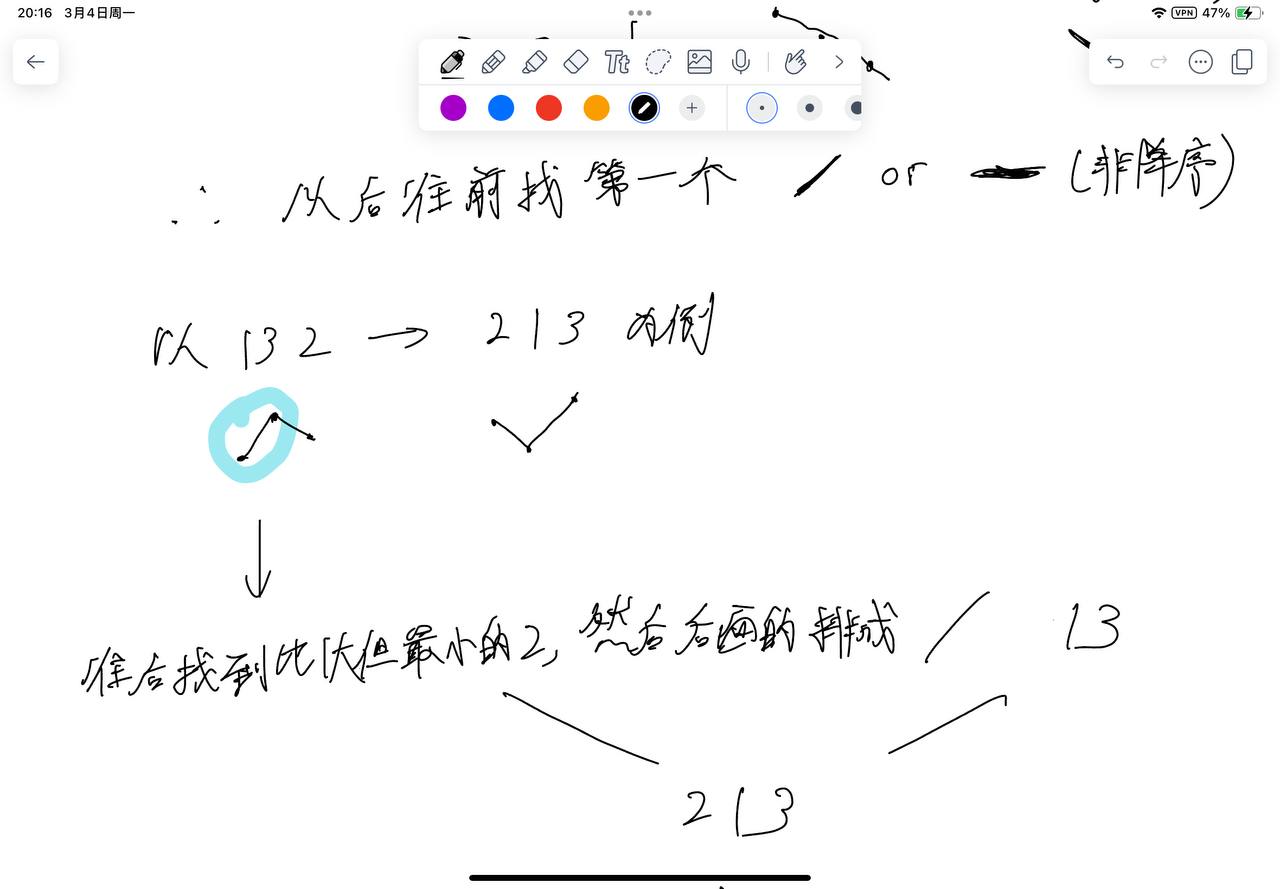 20:16 3月4日周一
VPN 47%
Tt
∴ 从后往前找第一个 / or — (非降序)
以 132 → 213 为例
往后找到比1大但最小的2, 然后后面的排成 / 13
213